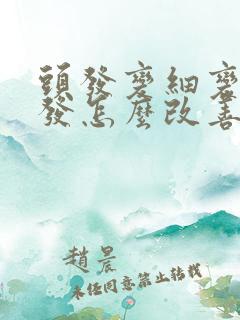 頭發變細變
發怎麼改善
趙晨
未經同意禁止轉載